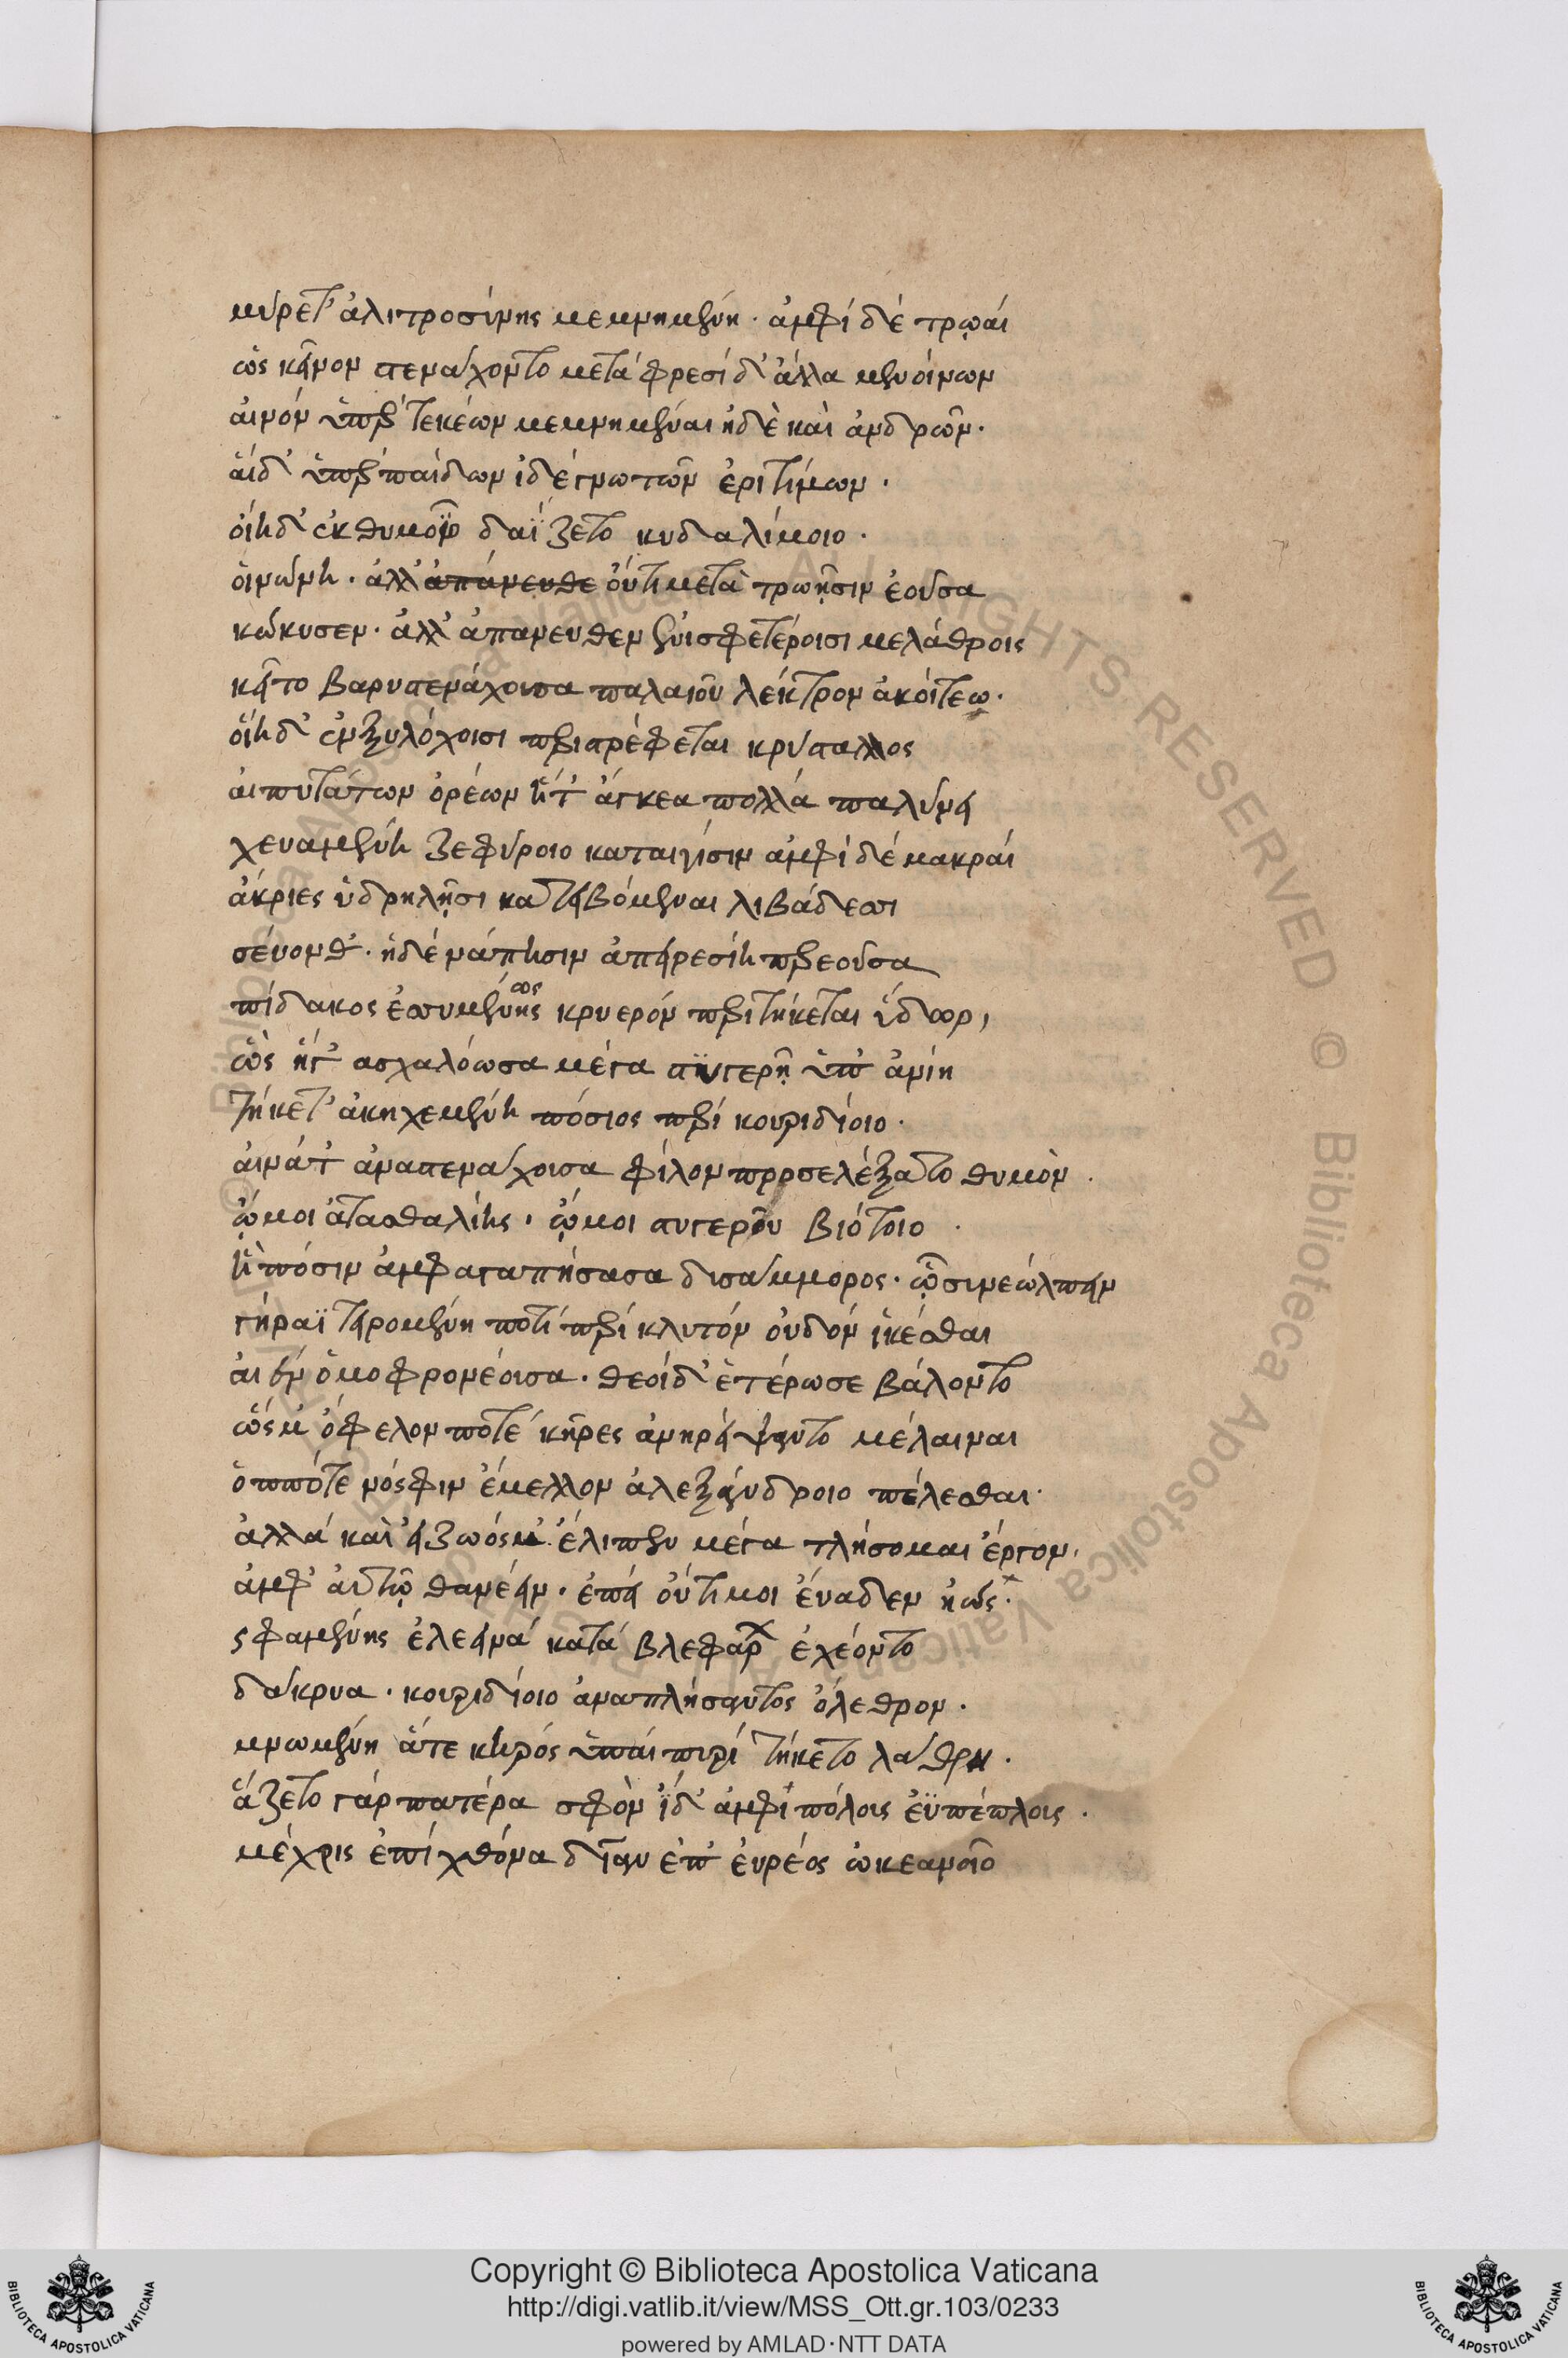 μύρετ' ἀλιτροσύνης μεμνημένη· ἀμφὶ δέ τρωαί
ὡς κεῖνον στενάχοντο μετά φρεσί δ' ἄλλα μενοίνων
αἱ μὲν ὑπὲρ τεκέων μεμνημέναι ἠδὲ καὶ ἀνδρῶν·
αἱ δ' ὑπὲρ παίδων ἰδέ γνωτῶν ἐριτίμων·
οἵη δ' ἐκ θυμοῖο δαΐζετο κυδαλίμοιο·
οἰνώνη· ἀλλ' ἀπάνευθε οὔτι μετὰ τρωῇσιν ἐοῦσα
κώκυσεν· ἀλλ' ἀπανευθεν ἐνι σφετέροισι μελάθροις
κεῖτο βαρυστενάχουσα παλαιοῦ λέκτρον ἀκοίτεω·
οἵη δ' ἐν ξυλόχοισι περιτρέφεται κρύσταλλος
αἰπυτάτων ὀρέων ἥτ' ἄγκεα πολλά παλύνει
χευαμένη ζεφύροιο καταιγίσιν ἀμφί δέ μακραί
ἄκριες ὑδρηλῇσι κατειβόμεναι λιβάδεσσι
δεύονθ'· ἡ δέ νάπησιν ἀπειρεσίη περ ἐοῦσα
πίδακος ἐσσυμένης ος κρυερόν περιτήκεται ὕδωρ,
ὣς ἥγ' ασχαλόωσα μέγα στυγερῇ ὑπ' ἀνίη
τήκετ' ἀκηχεμένη πόσιος περί κουριδίοιο·
αἰνά τ' ἀναστενάχουσα φίλον προσελέξατο θυμὸν·
ᾤμοι ἀτασθαλίης· ᾤμοι στυγεροῦ βιότοιο·
ἣ πόσιν ἀμφαγαπήσασα δυσάμμορος· ᾧ συνεώλπειν
γήραϊ τειρομένη ποτί περί κλυτόν οὐδόν ἱκέσθαι
αἰέν ὁμοφρονέουσα· θεοί δ' ἑτέρωσε βάλοντο
ὥς μ' ὄφελον ποτέ κῆρες ἀνηρείψαντο μέλαιναι
ὁππότε νόσφιν ἔμελλον ἀλεξάνδροιο πέλεσθαι·
ἀλλά καὶ εἰ ζωός μ' ἔλιπεν μέγα τλήσομαι ἔργον,
ἀμφ' αὐτῷ θανέειν· ἐπεί οὔτι μοι εὔαδεν ἠώς·
ς φαμένης ἐλεεινά κατά βλεφάρ ἐχέοντο
δάκρυα· κουριδίοιο ἀναπλήσαντος ὄλεθρον·
μνωμένη ἅτε κηρός ὑπαί πυρί τήκετο λάθρη·
ἅζετο γάρ πατέρα σφὸν ἰδ' ἀμφιπόλοις ἐϋπέπλοις·
μέχρις ἐπί χθόνα δῖαν ἐπ' εὐρέος ὠκεανοῖο
Copyright © Biblioteca Apostolica Vaticana
http://digi.vatlib.it/view/MSS_Ott.gr.103/0233
powered by AMLAD·NTT DATA